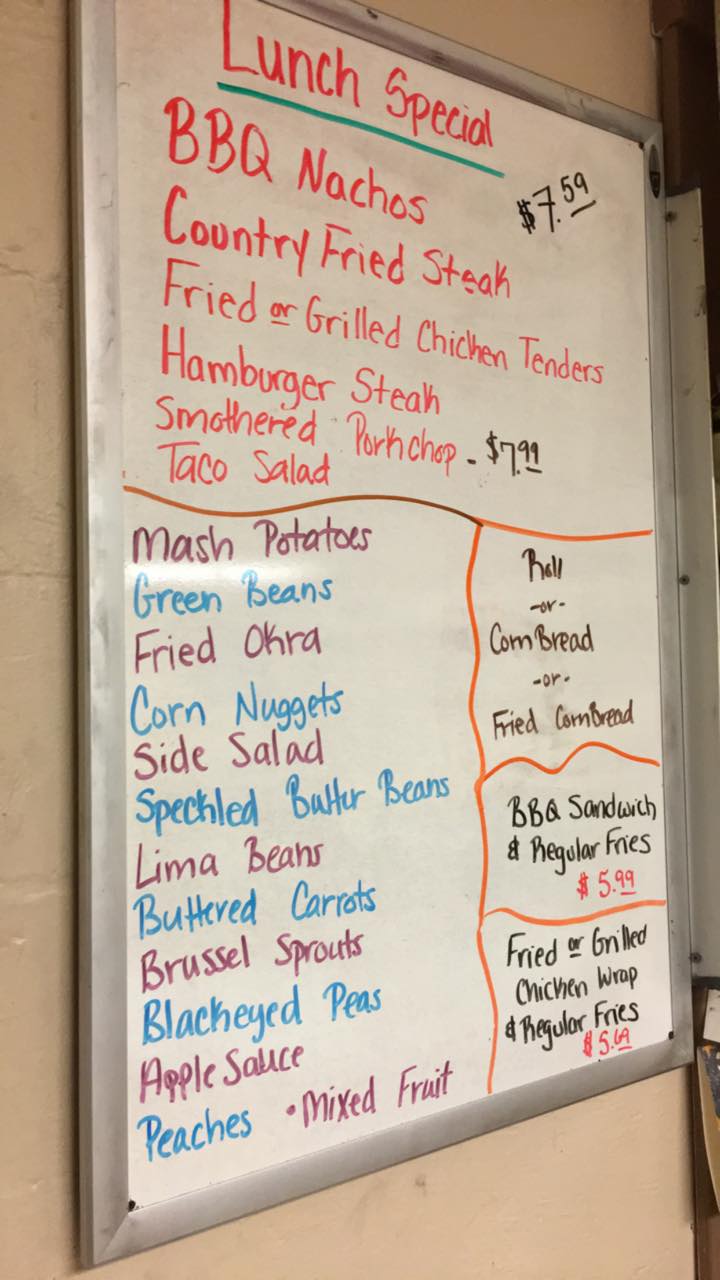 Lunch Special
BBQ Nachos $7.59
Country Fried Steak
Fried or Grilled Chicken Tenders
Hamburger Steak
Smothered Porkchop - $7.99
Taco Salad
Mash Potatoes
Green Beans
Fried Okra
Corn Nuggets
Side Salad
Speckled Butter Beans
Lima Beans
Buttered Carrots
Brussel Sprouts
Blackeyed Peas
Apple Sauce
Peaches • Mixed Fruit
Roll
-or-
CornBread
-or-
Fried CornBread
BBQ Sandwich
& Regular Fries
$5.99
Fried or Grilled
Chicken Wrap
& Regular Fries
$5.69